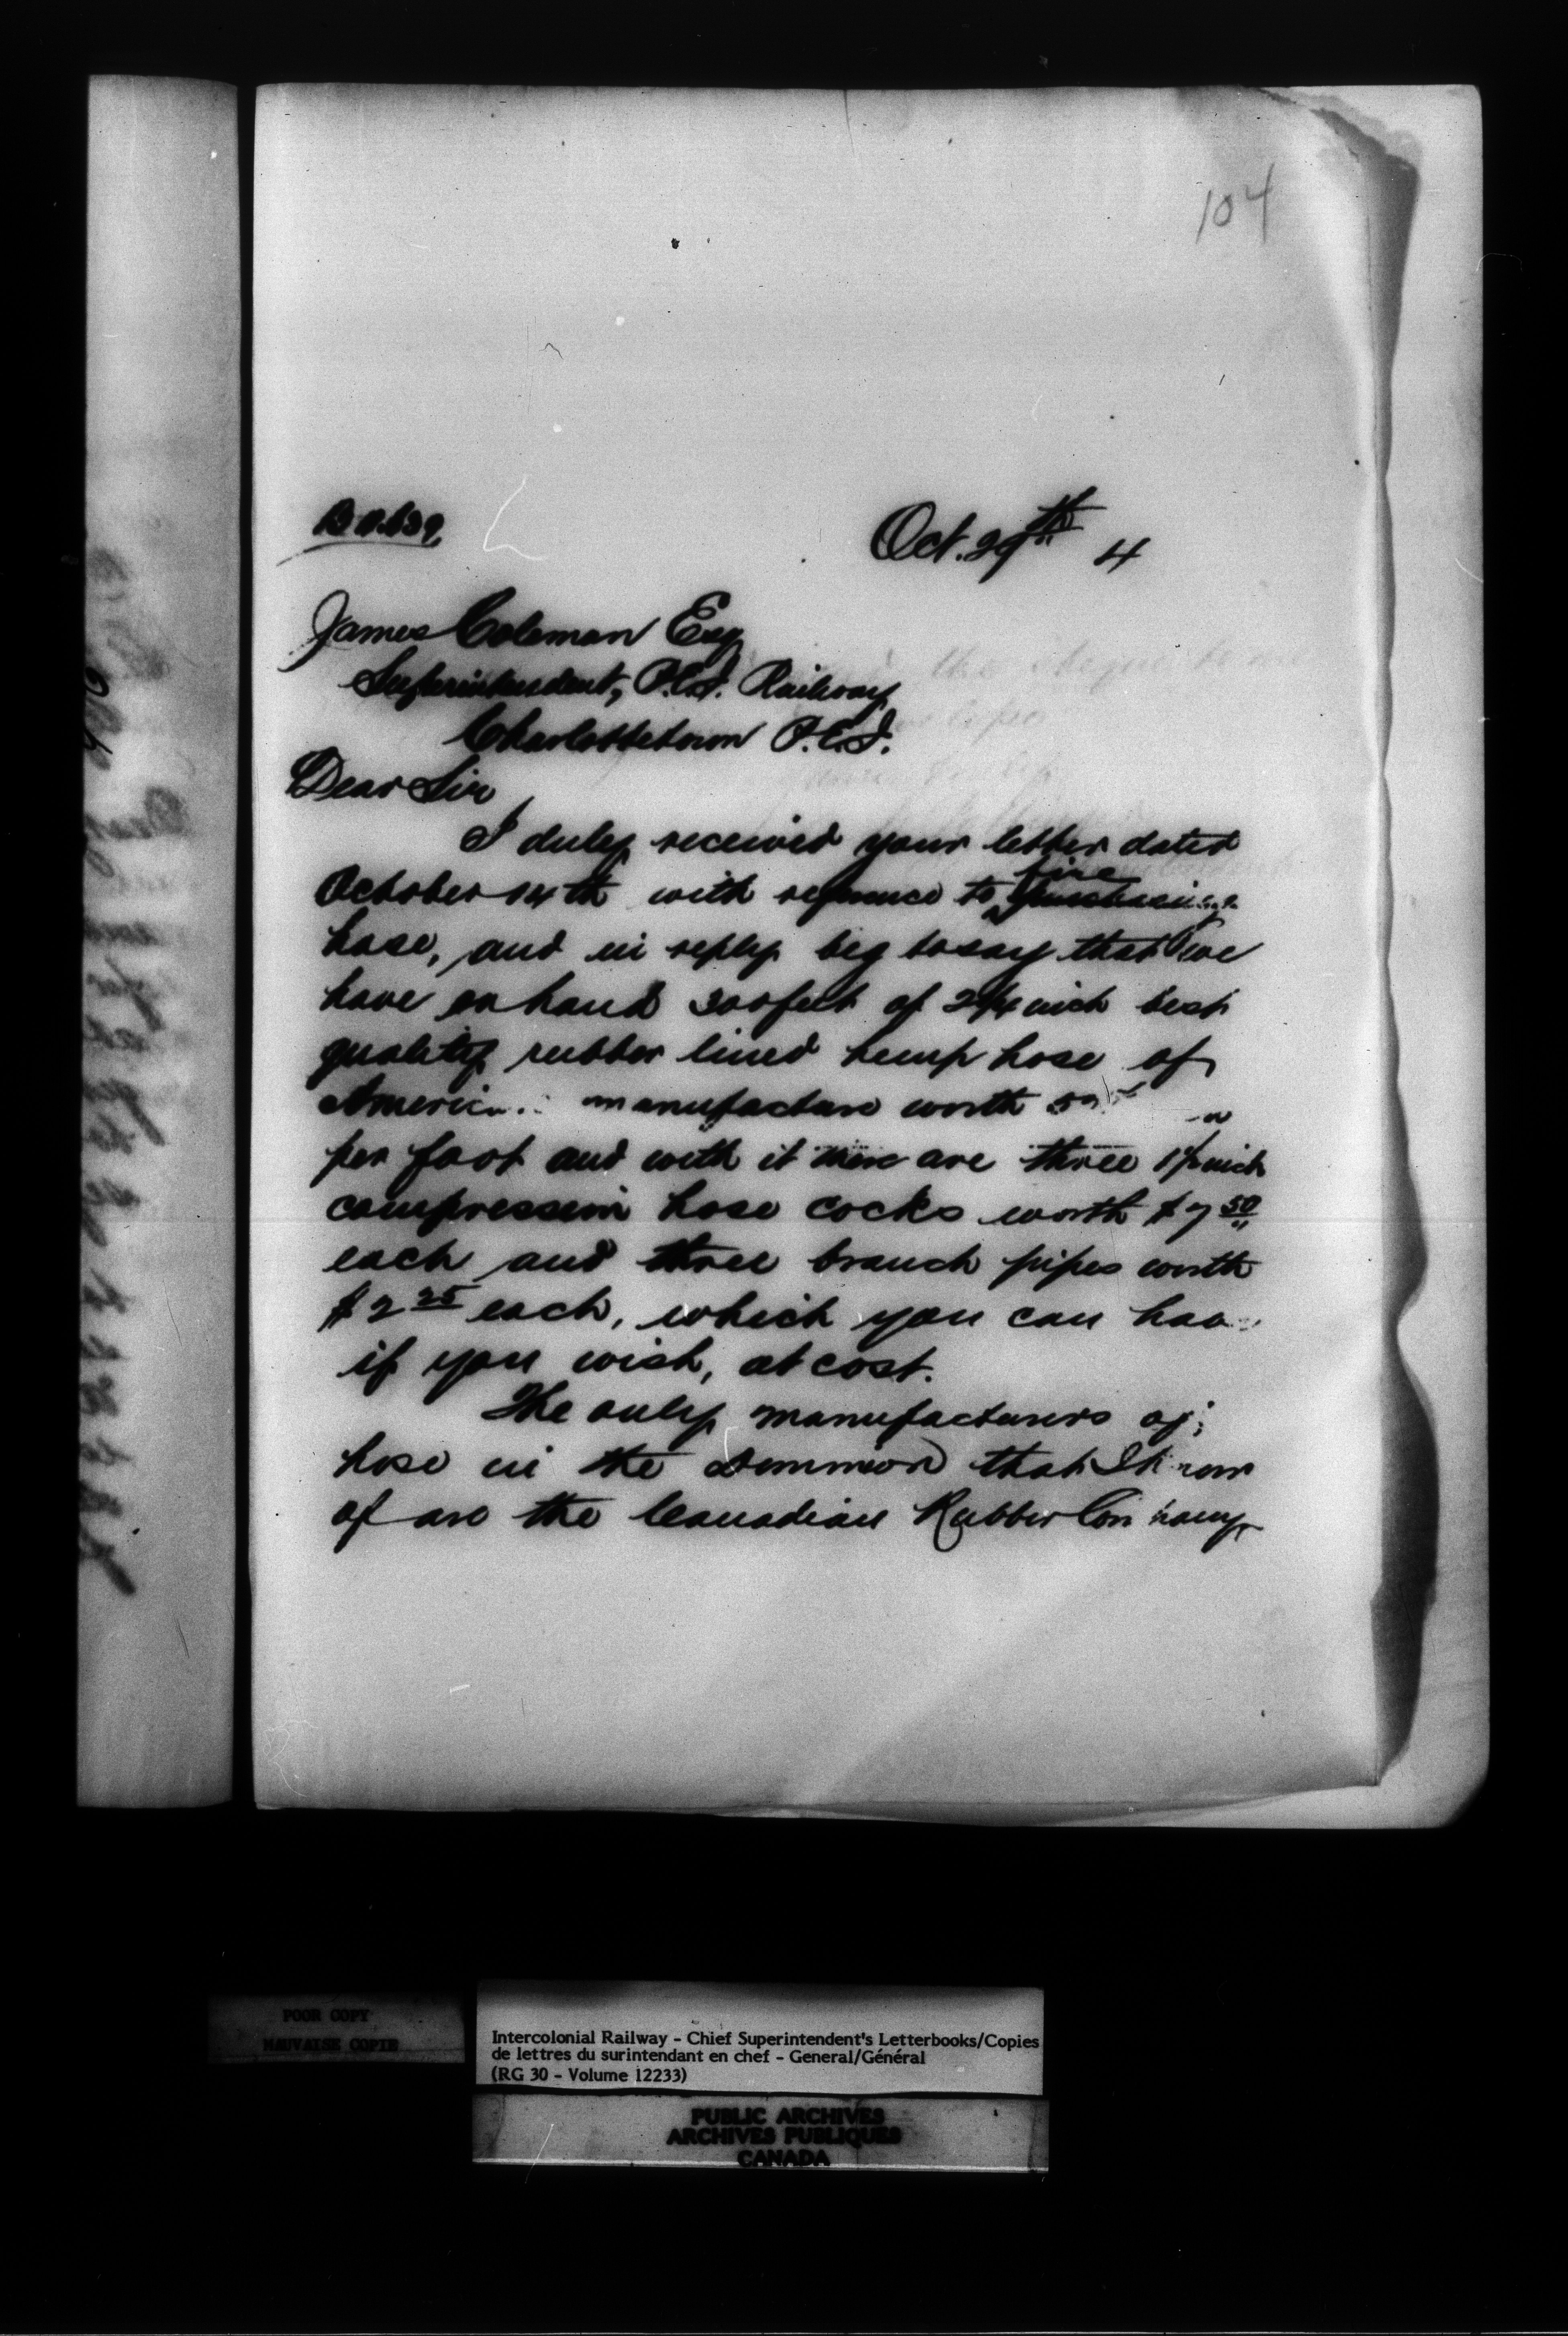 104
Oct. 29th 4
James Coleman Esq
Superintendent, P.E.I. Railway
Charlottetown P.E.I.
Dear Sir
I duly received your letter dated
October 14th with reference to purchasing fire
hose, and in reply beg to say that we
have on hand 300 feet of 2 1/4 inch best
quality rubber lined hemp hose of
manufacture worth
per foot and with it there are three inch
compression hose cocks worth $7 50
each and three branch pipes worth
$2 25 each, which you can
if you wish, at cost.
The only manufacturers of
hose in the Dominion that I know
of are the Canadian Rubber Company
POOR COPY
MAUVAISE COPIE
Intercolonial Railway - Chief Superintendent's Letterbooks/Copies
de lettres du surintendant en chef - General/Général
(RG 30 - Volume 12233)
PUBLIC ARCHIVES
ARCHIVES PUBLIQUES
CANADA